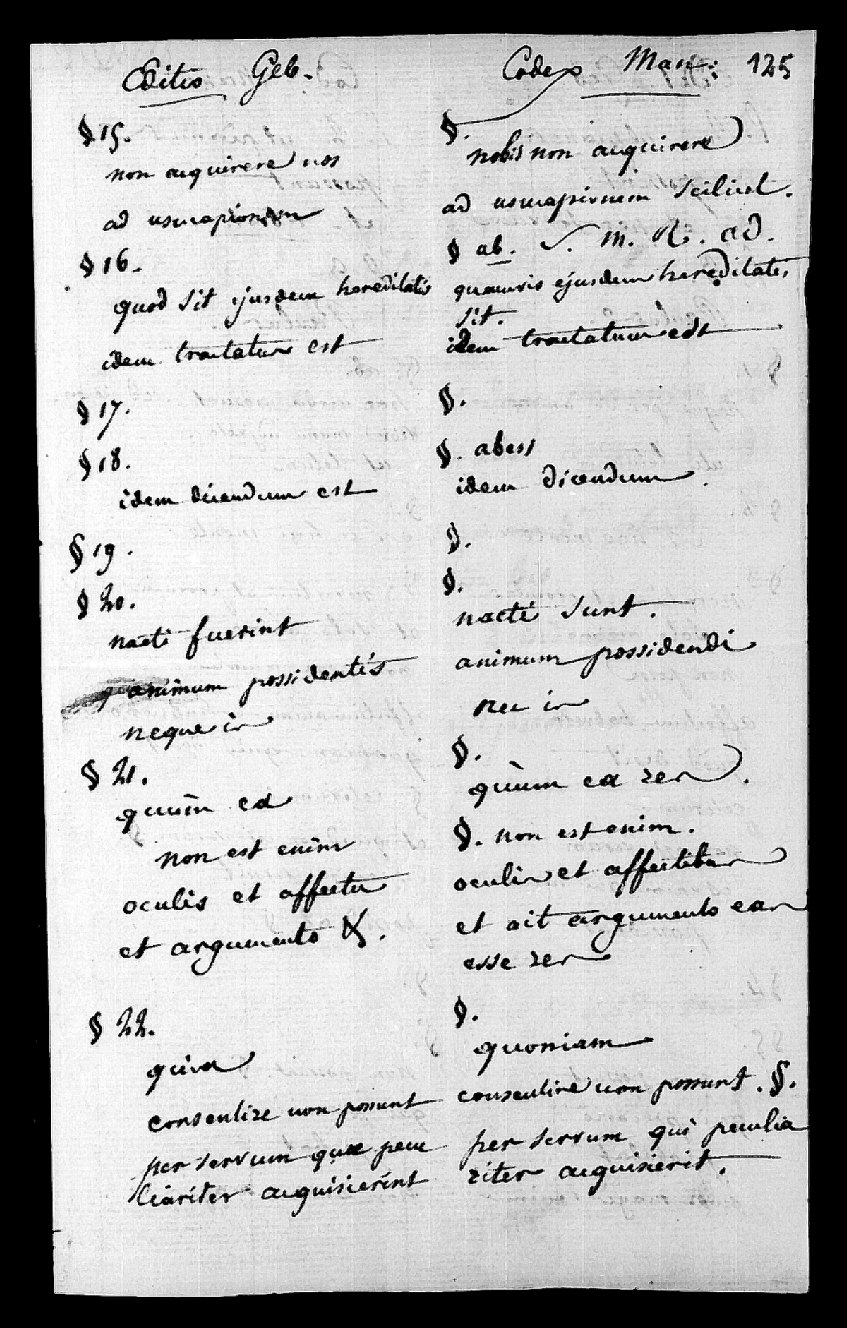 Editio Geb.
§ 15.
non acquirere nos
ad usucapionem
§ 16.
quod sit ejusdem hereditatis
idem tractatum est
§ 17.
§ 18.
idem dicendum est
§ 19.
§ 20.
nacti fuerint
animum possidentis
neque in
§ 21.
quum ea
non est enim
oculis et affectu
et argumento &.
§ 22.
quia
consentire non possunt
per servum quae pecu
liariter acquisierint
Codex Man: 125
§.
nobis non acquirere
ad usucapionem scilicet.
§ ab. S. m. R. ad.
quamvis ejusdem hereditatis
sit.
idem tractatum est
§.
§. abest
idem dicendum.
§.
§.
nacti sunt.
animum possidendi
nec in
§.
quum ea res.
§. non est enim.
oculis et affectibus
et ait argumento eas
esse res
§.
quoniam
consentire non possunt. §.
per servum qui peculia
riter acquisierit.